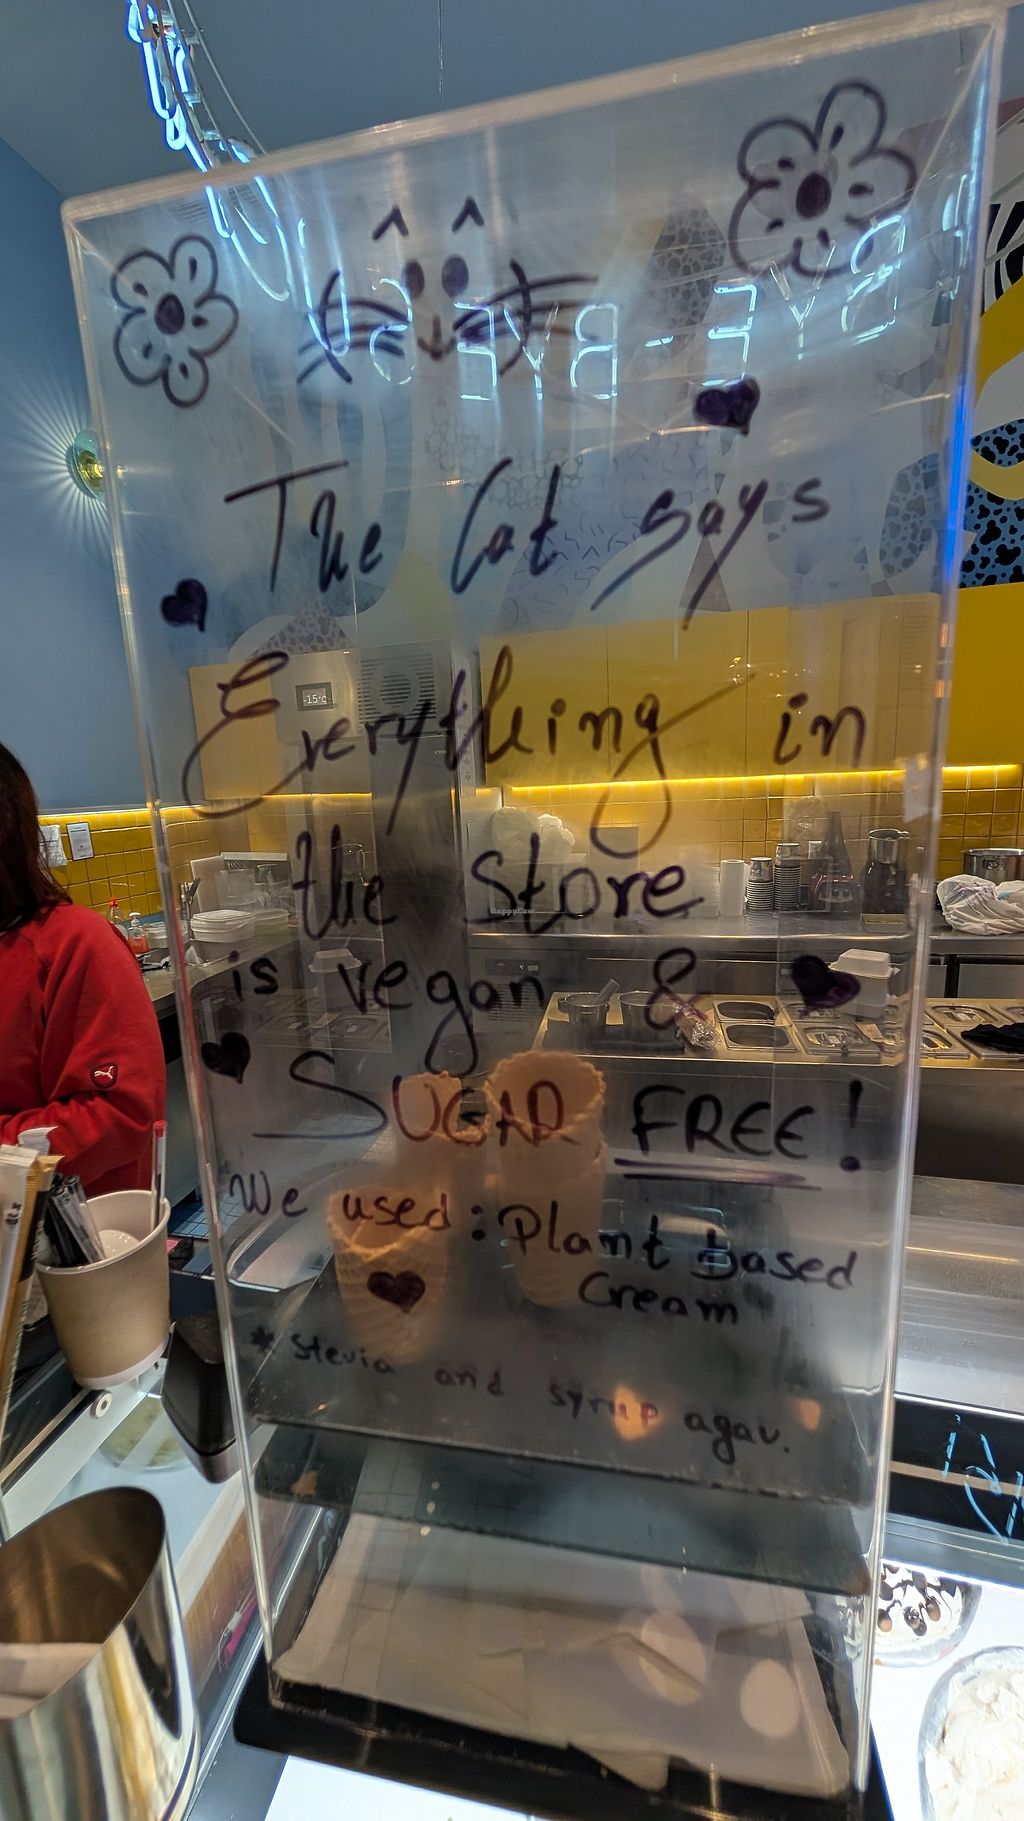 BYE-BYE SU
The Cat says
Everything in
-15°C
the Store
HappyCow
is vegan &
SUGAR FREE!
We used: Plant based
Cream
* stevia and syrup agav.